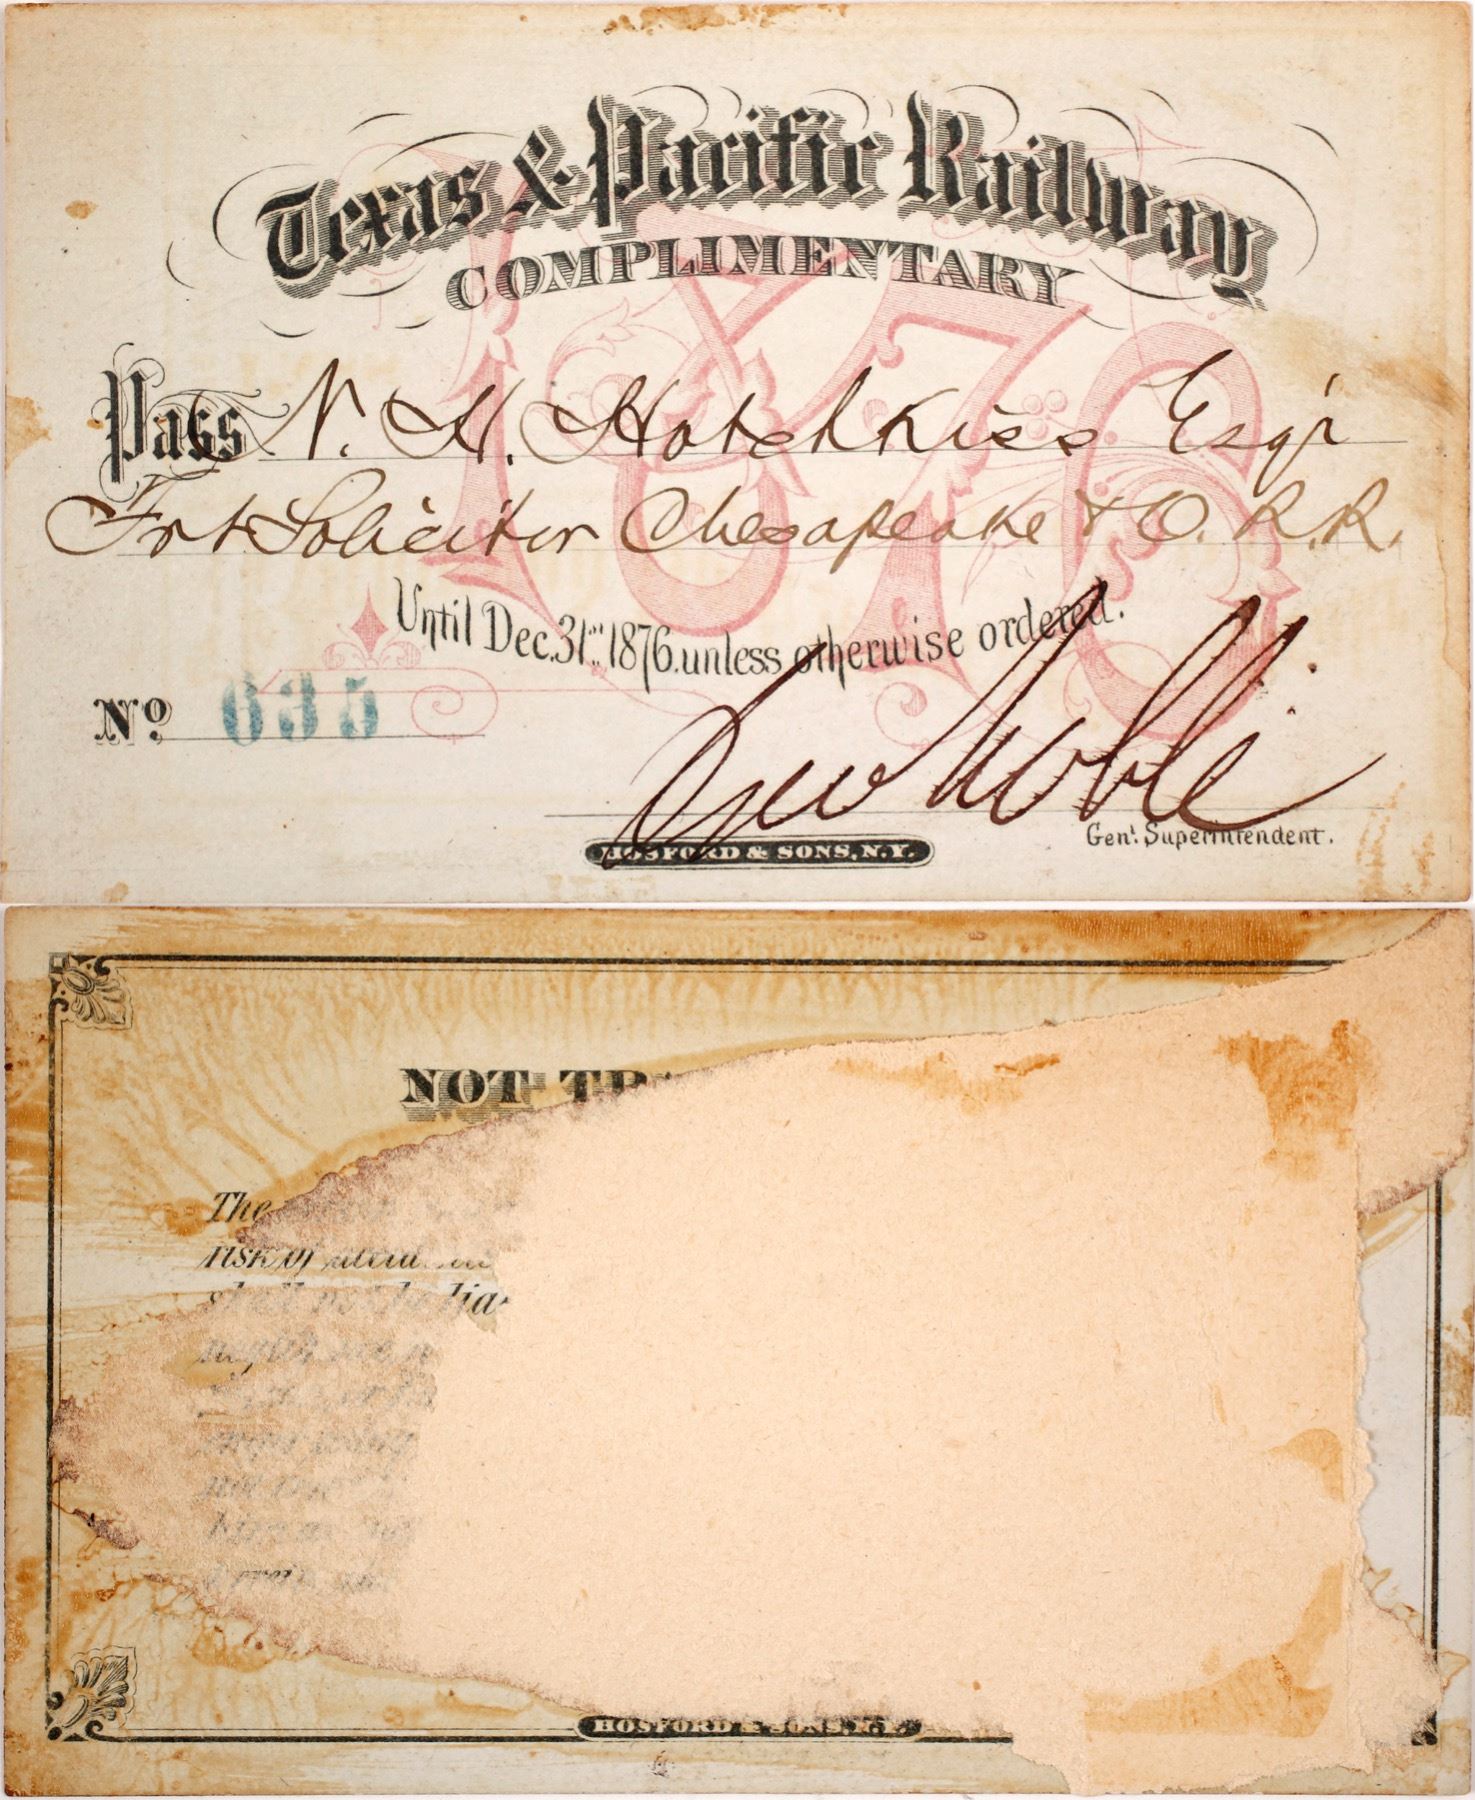 Texas & Pacific Railway
COMPLIMENTARY
1876
Pass N. H. Hotchkiss Esq'r
Frt Solicitor Chesapeake & O. R.R.
Until Dec. 31st 1876. unless otherwise ordered.
No 635
Geo Noble
Gen'l Superintendent.
HOSFORD & SONS, N.Y.
NOT
The
risk of
shall not be
HOSFORD & SONS, N.Y.